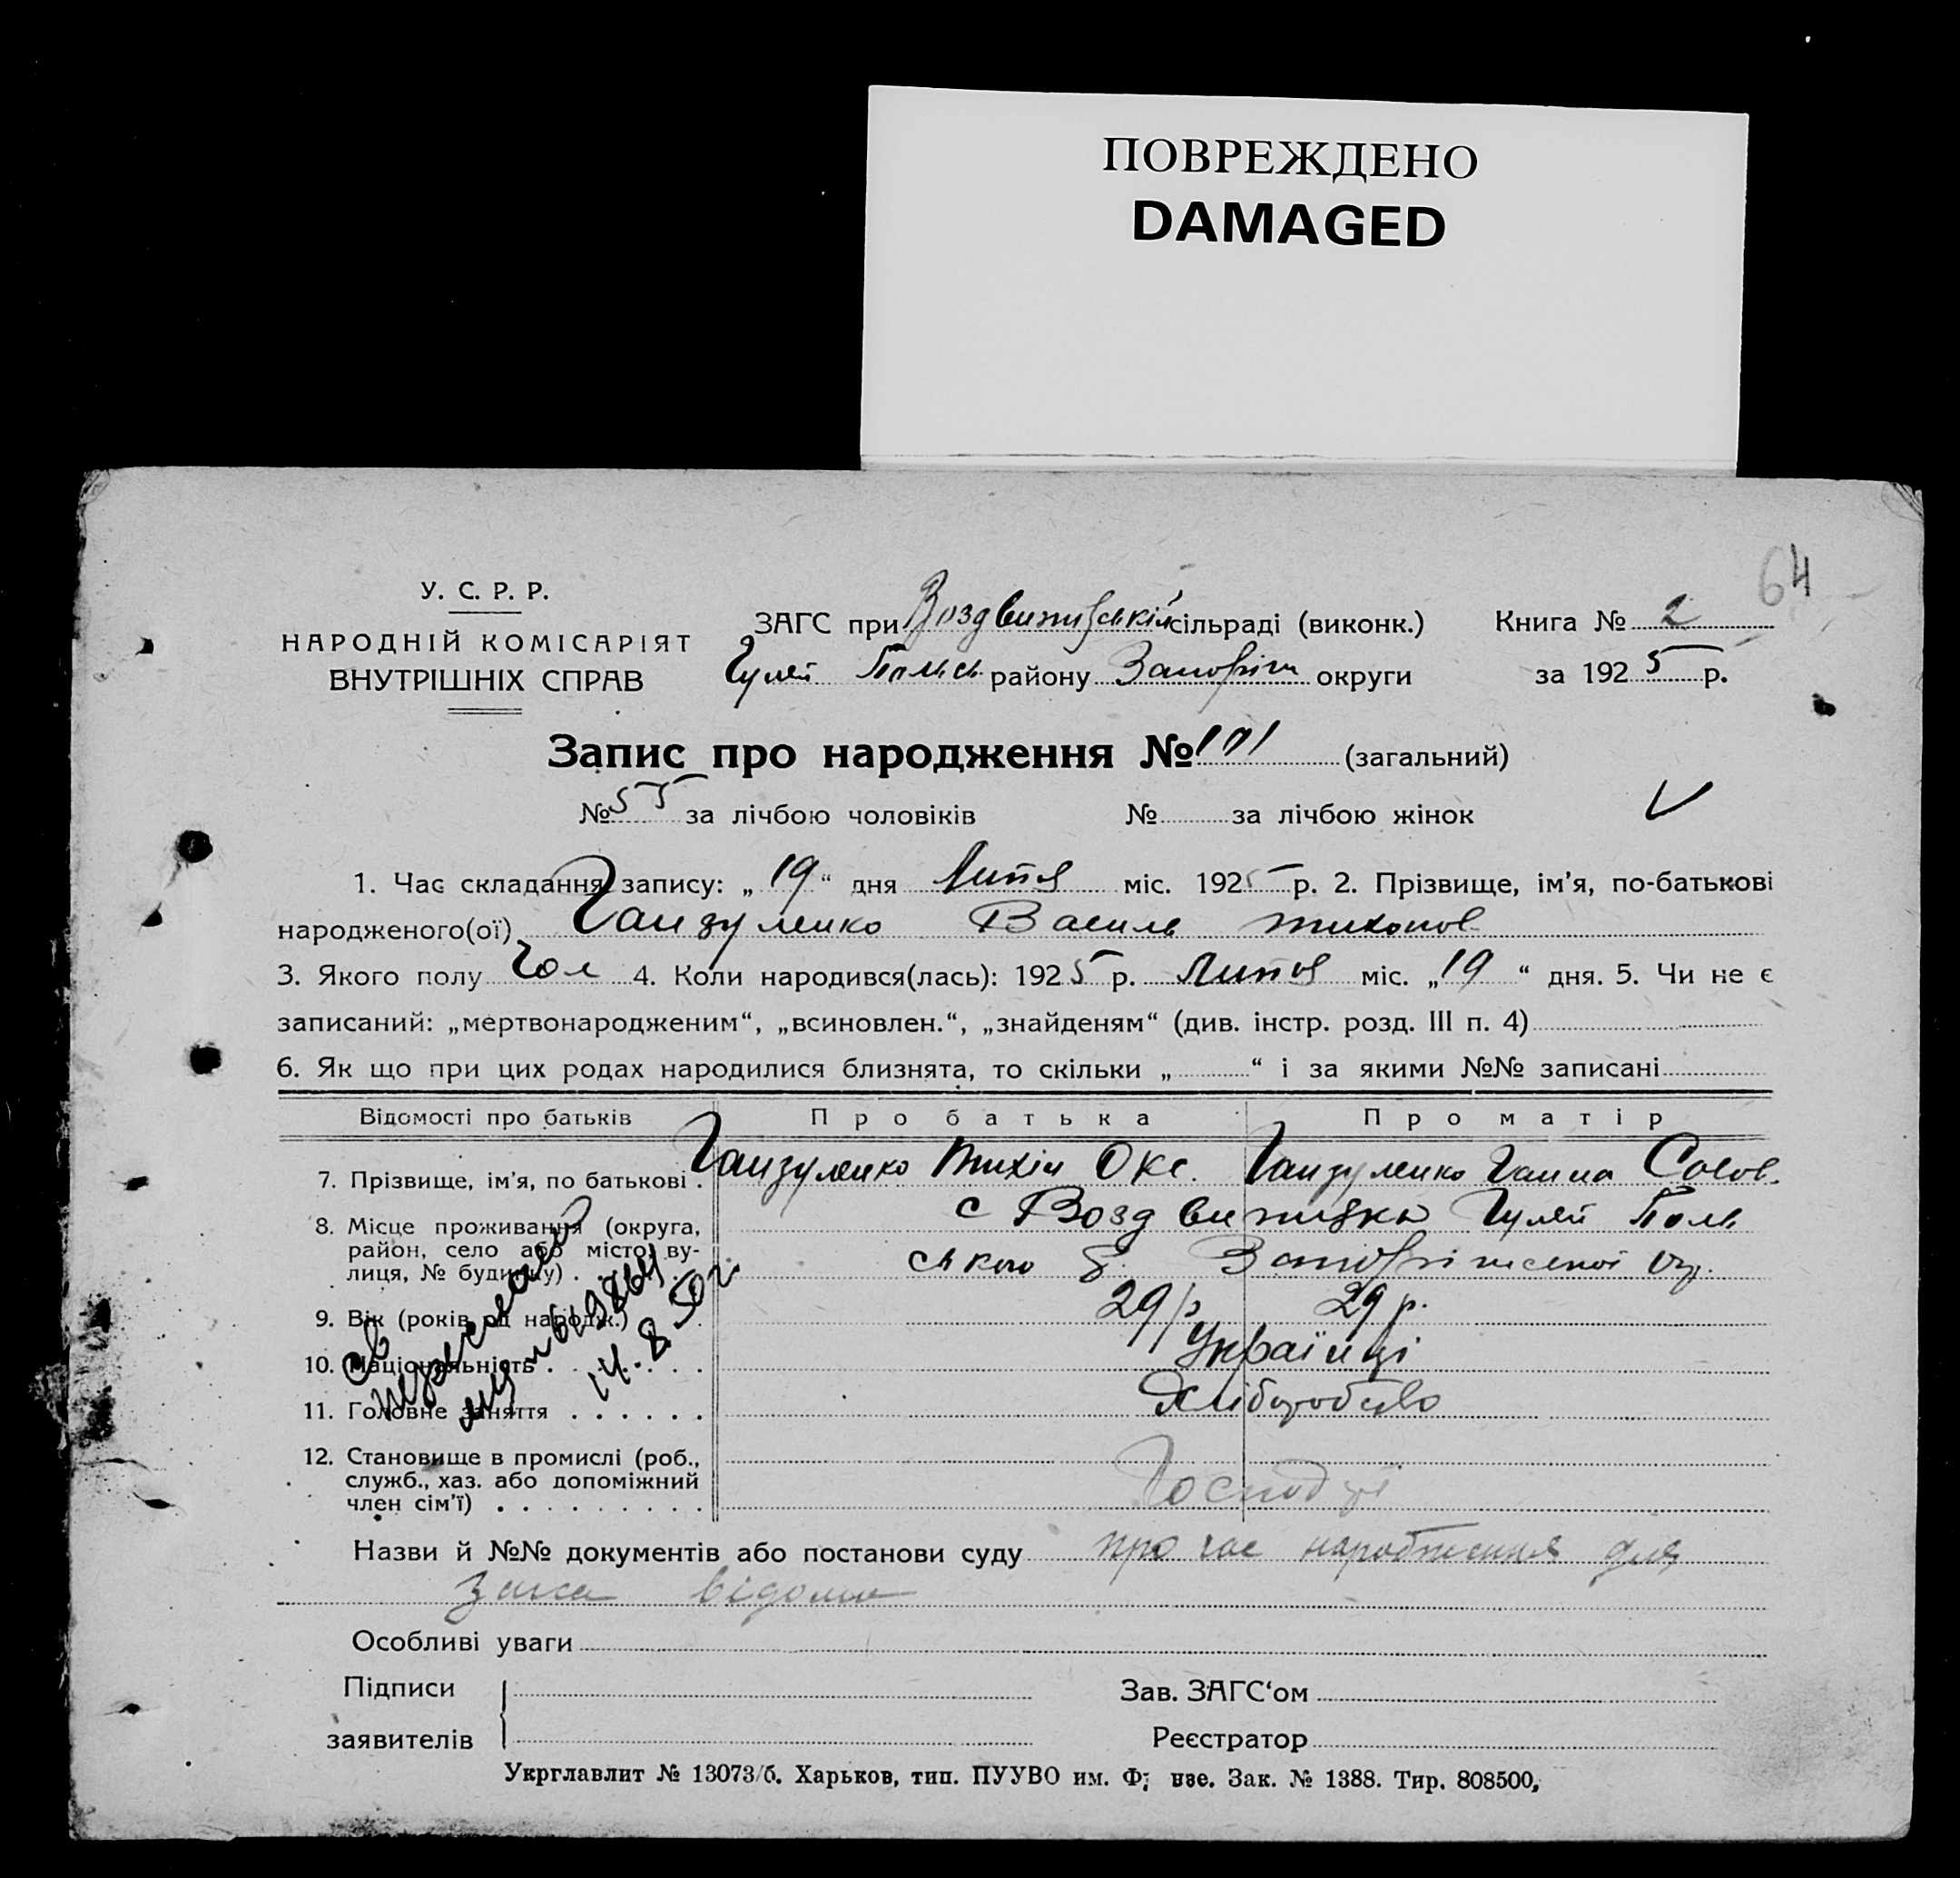 ПОВРЕЖДЕНО
DAMAGED
64
У. С. Р. Р.
НАРОДНІЙ КОМІСАРІЯТ
ВНУТРІШНІХ СПРАВ
ЗАГС при Воздвижувській сільраді (виконк.) Книга № 2
Гуляй Польск. району Запоріж округи за 1925 р.
Запис про народження № 101 (загальний)
№ 55 за лічбою чоловіків № за лічбою жінок V
1. Час складання запису: „19“ дня Липня міс. 1925 р. 2. Прізвище, ім’я, по-батькові
народженого(ої) Ганзуленко Василь Тихонов
3. Якого полу Чол 4. Коли народився(лась): 1925 р. Липня міс. „19“ дня. 5. Чи не є
записаний: „мертвонародженим“, „всиновлен.“, „знайденям“ (див. інстр. розд. III п. 4)
6. Як що при цих родах народилися близнята, то скільки „ “ і за якими №№ записані
Відомості про батьків Про батька Про матір
7. Прізвище, ім’я, по батькові . Ганзуленко Тихін Окс. Ганзуленко Ганна Совов.
8. Місце проживання (округа, район, село або місто, вулиця, № будинку) . с Воздвижувки Гуляй Поль
ського Р. Запоріжської Окр.
9. Вік (років од народж.) . 29 р 29 р.
10. Національність . Українці
11. Головне заняття . . . . . . Хліборобство
12. Становище в промислі (роб.,
служб., хаз. або допоміжний
член сім’ї) . . . . . . . . . Господрі
14.8.50 г.
Назви й №№ документів або постанови суду про час народження для
загса відомо
Особливі уваги
Підписи
заявителів
Зав. ЗАГС‘ом
Реєстратор
Укрглавлит № 13073/б. Харьков, тип. ПУУВО им. Зак. № 1388. Тир. 808500,